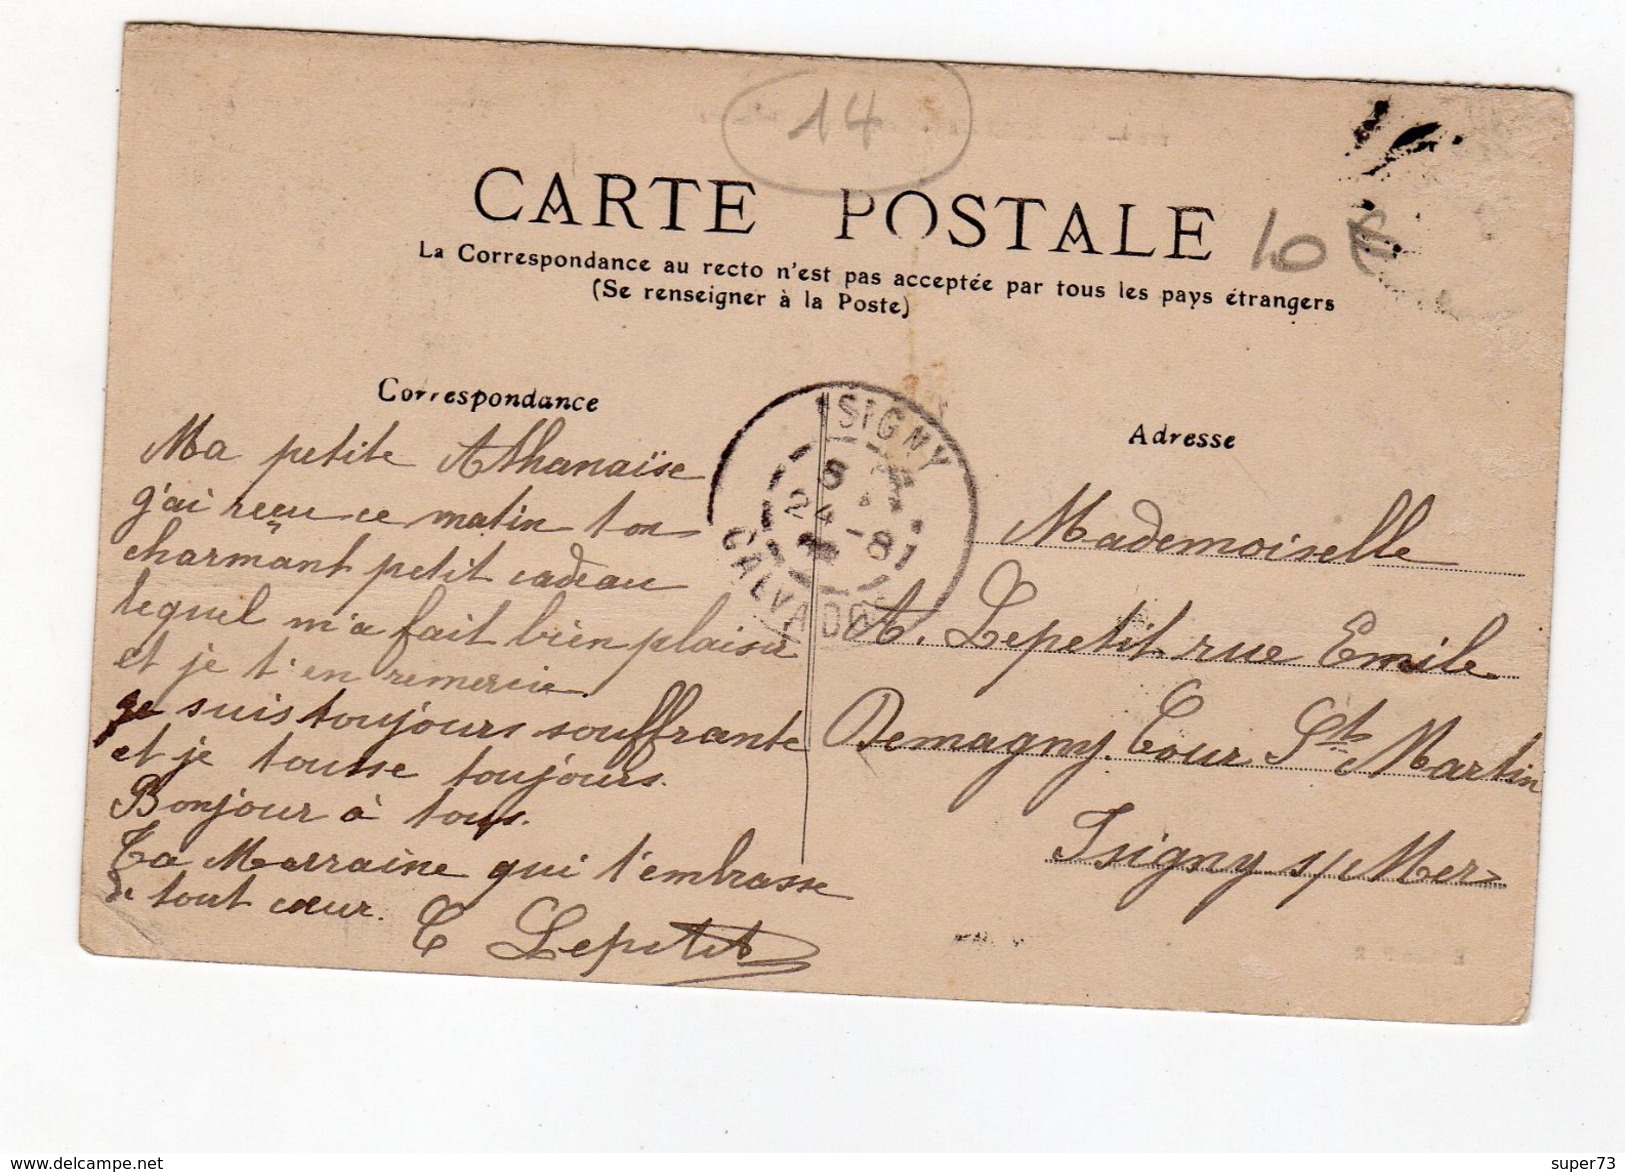 14
CARTE POSTALE
10 €
La Correspondance au recto n'est pas acceptée par tous les pays étrangers
(Se renseigner à la Poste)
Correspondance
Ma petite Athanaïse
j'ai reçu ce matin ton
charmant petit cadeau
lequel m'a fait bien plaisir
et je t'en remercie.
je suis toujours souffrante
et je tousse toujours.
Bonjour à tous.
Ta Marraine qui t'embrasse
de tout cœur.
C Lepetit
ISIGNY
8
24 - 8
CALVADOS
Adresse
Mademoiselle
A. Lepetit rue Emile
Demagny. Cour St Martin
Isigny s/ Mer
delcampe.net
super73